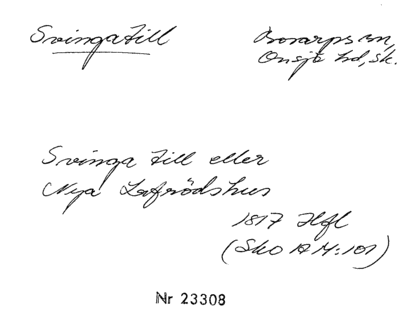 Svinga till
Bosarps sn,
Onsjö hd, sk.
Svinga till eller
Nya Lafrödshus
1817 Hfl
(Sko 10 M:101)
Nr 23308